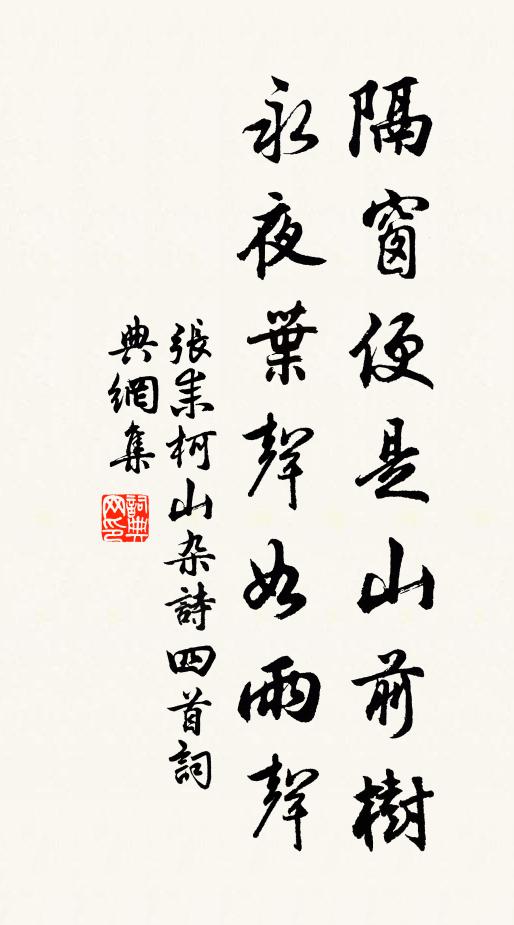 隔窗便是山前樹
永夜葉聲如雨聲
張耒柯山杂詩四首詞
典網集
詞典
网印